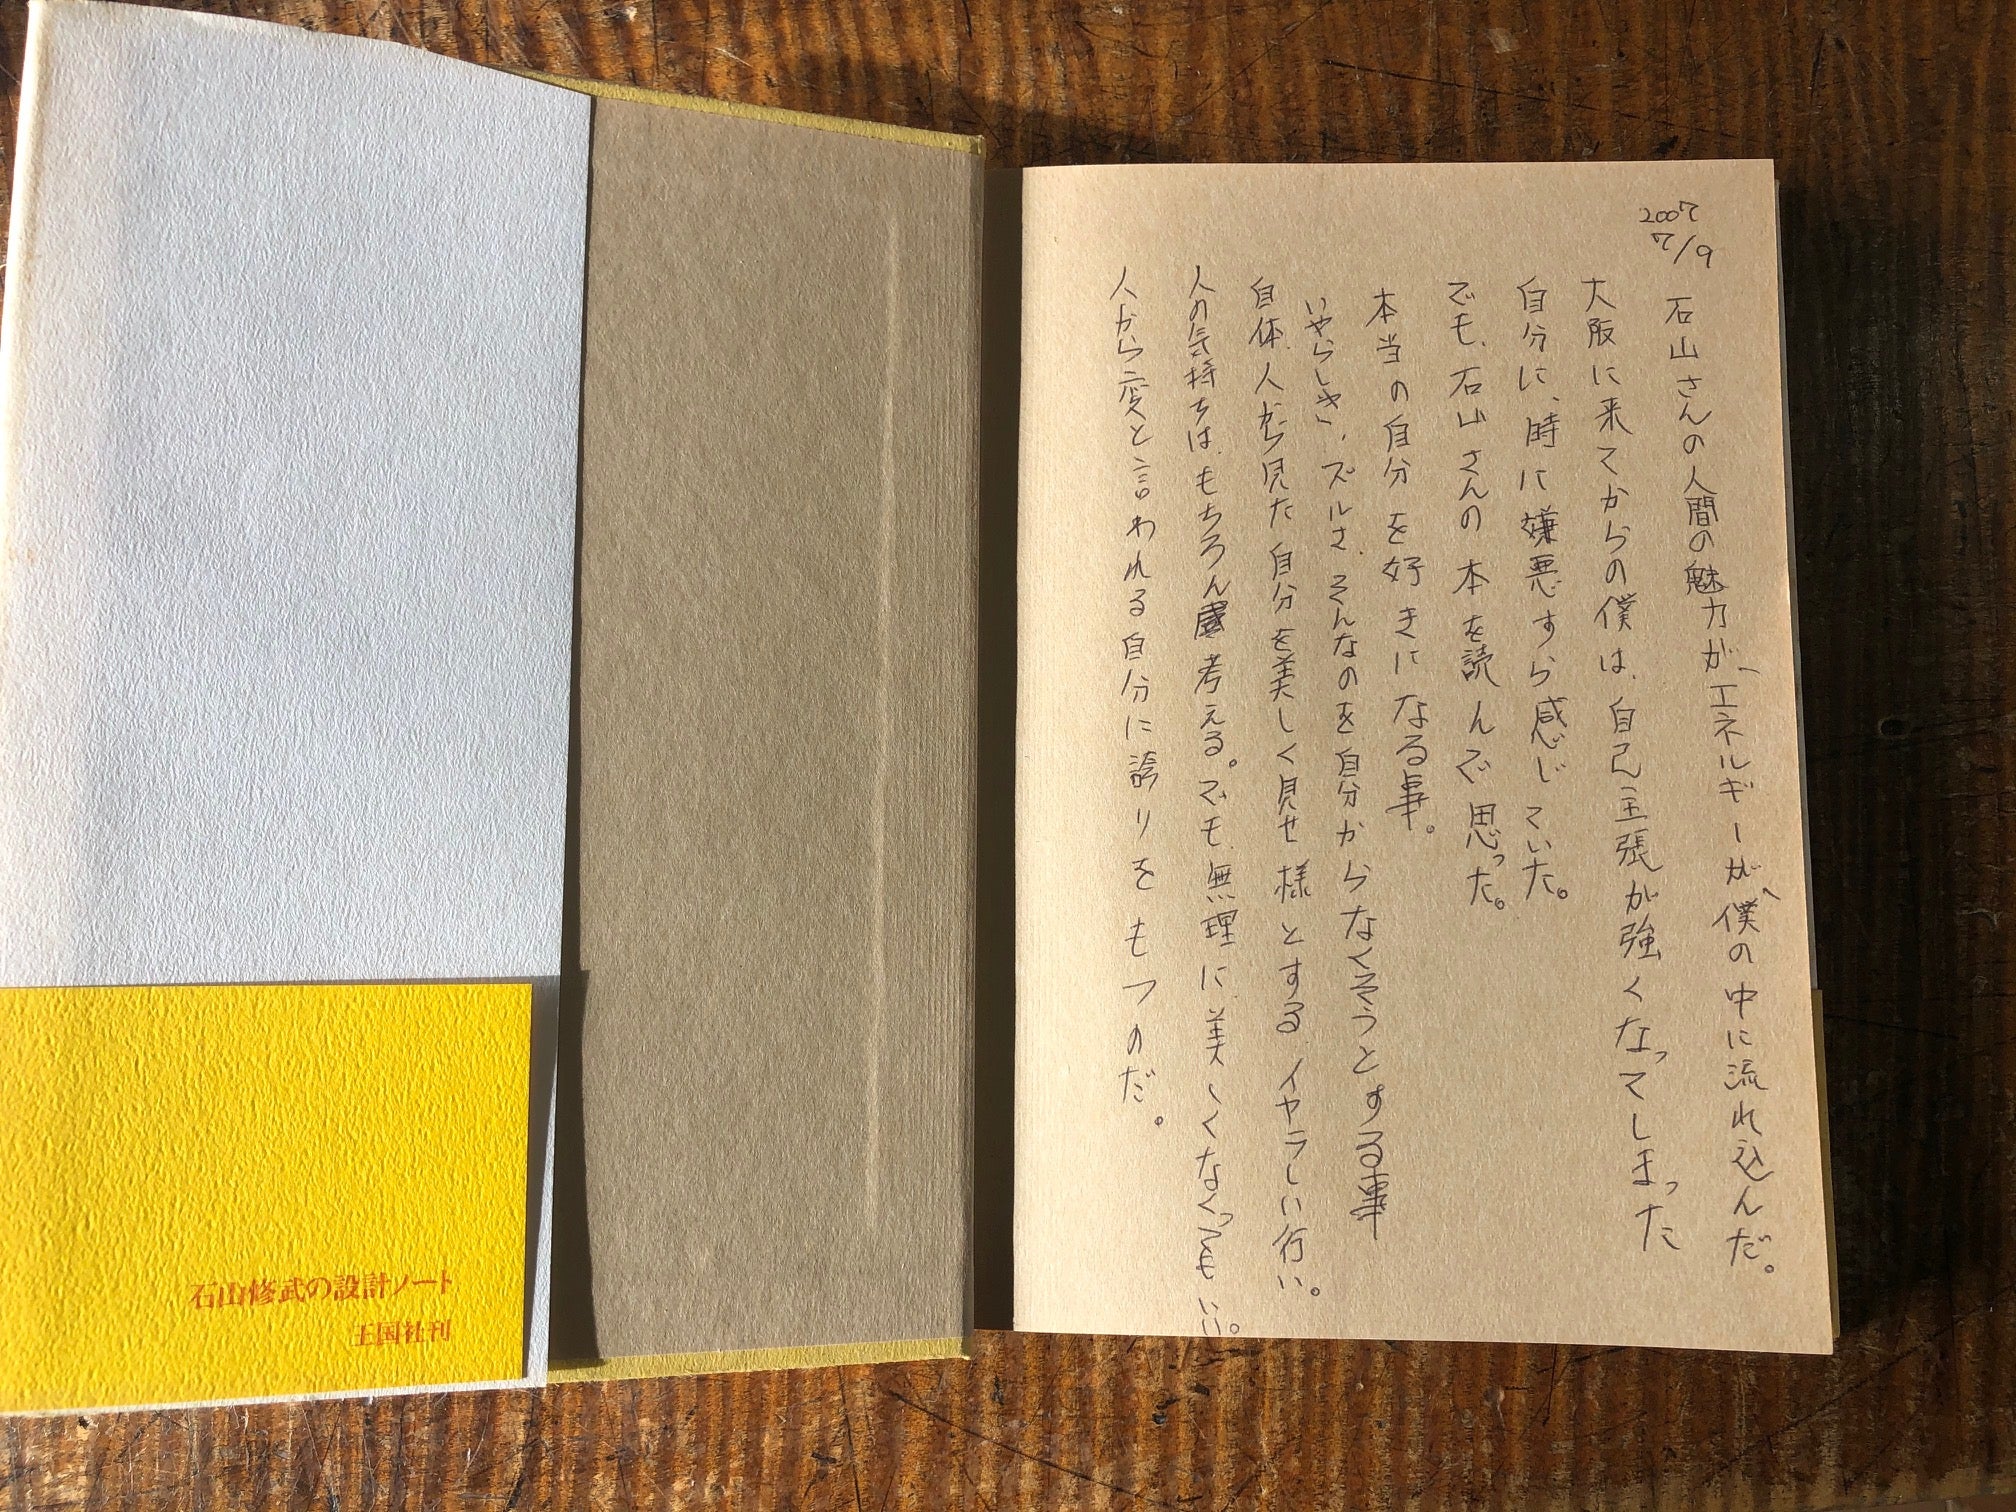 2007
7/9
石山さんの人間の魅力が、エネルギーが、僕の中に流れ込んだ。
大阪に来てからの僕は、自己主張が強くなってしまった
自分に、時に嫌悪すら感じていた。
でも、石山さんの本を読んで思った。
本当の自分を好きになる事。
いやらしさ、ズルさ、そんなのを自分からなくそうとする事
自体、人から見た自分を美しく見せ様とするイヤラしい行い。
人の気持ちは、もちろん考える。でも、無理に美しくなくってもいい。
人から変と言われる自分に誇りをもつのだ。
石山修武の設計ノート
王国社刊